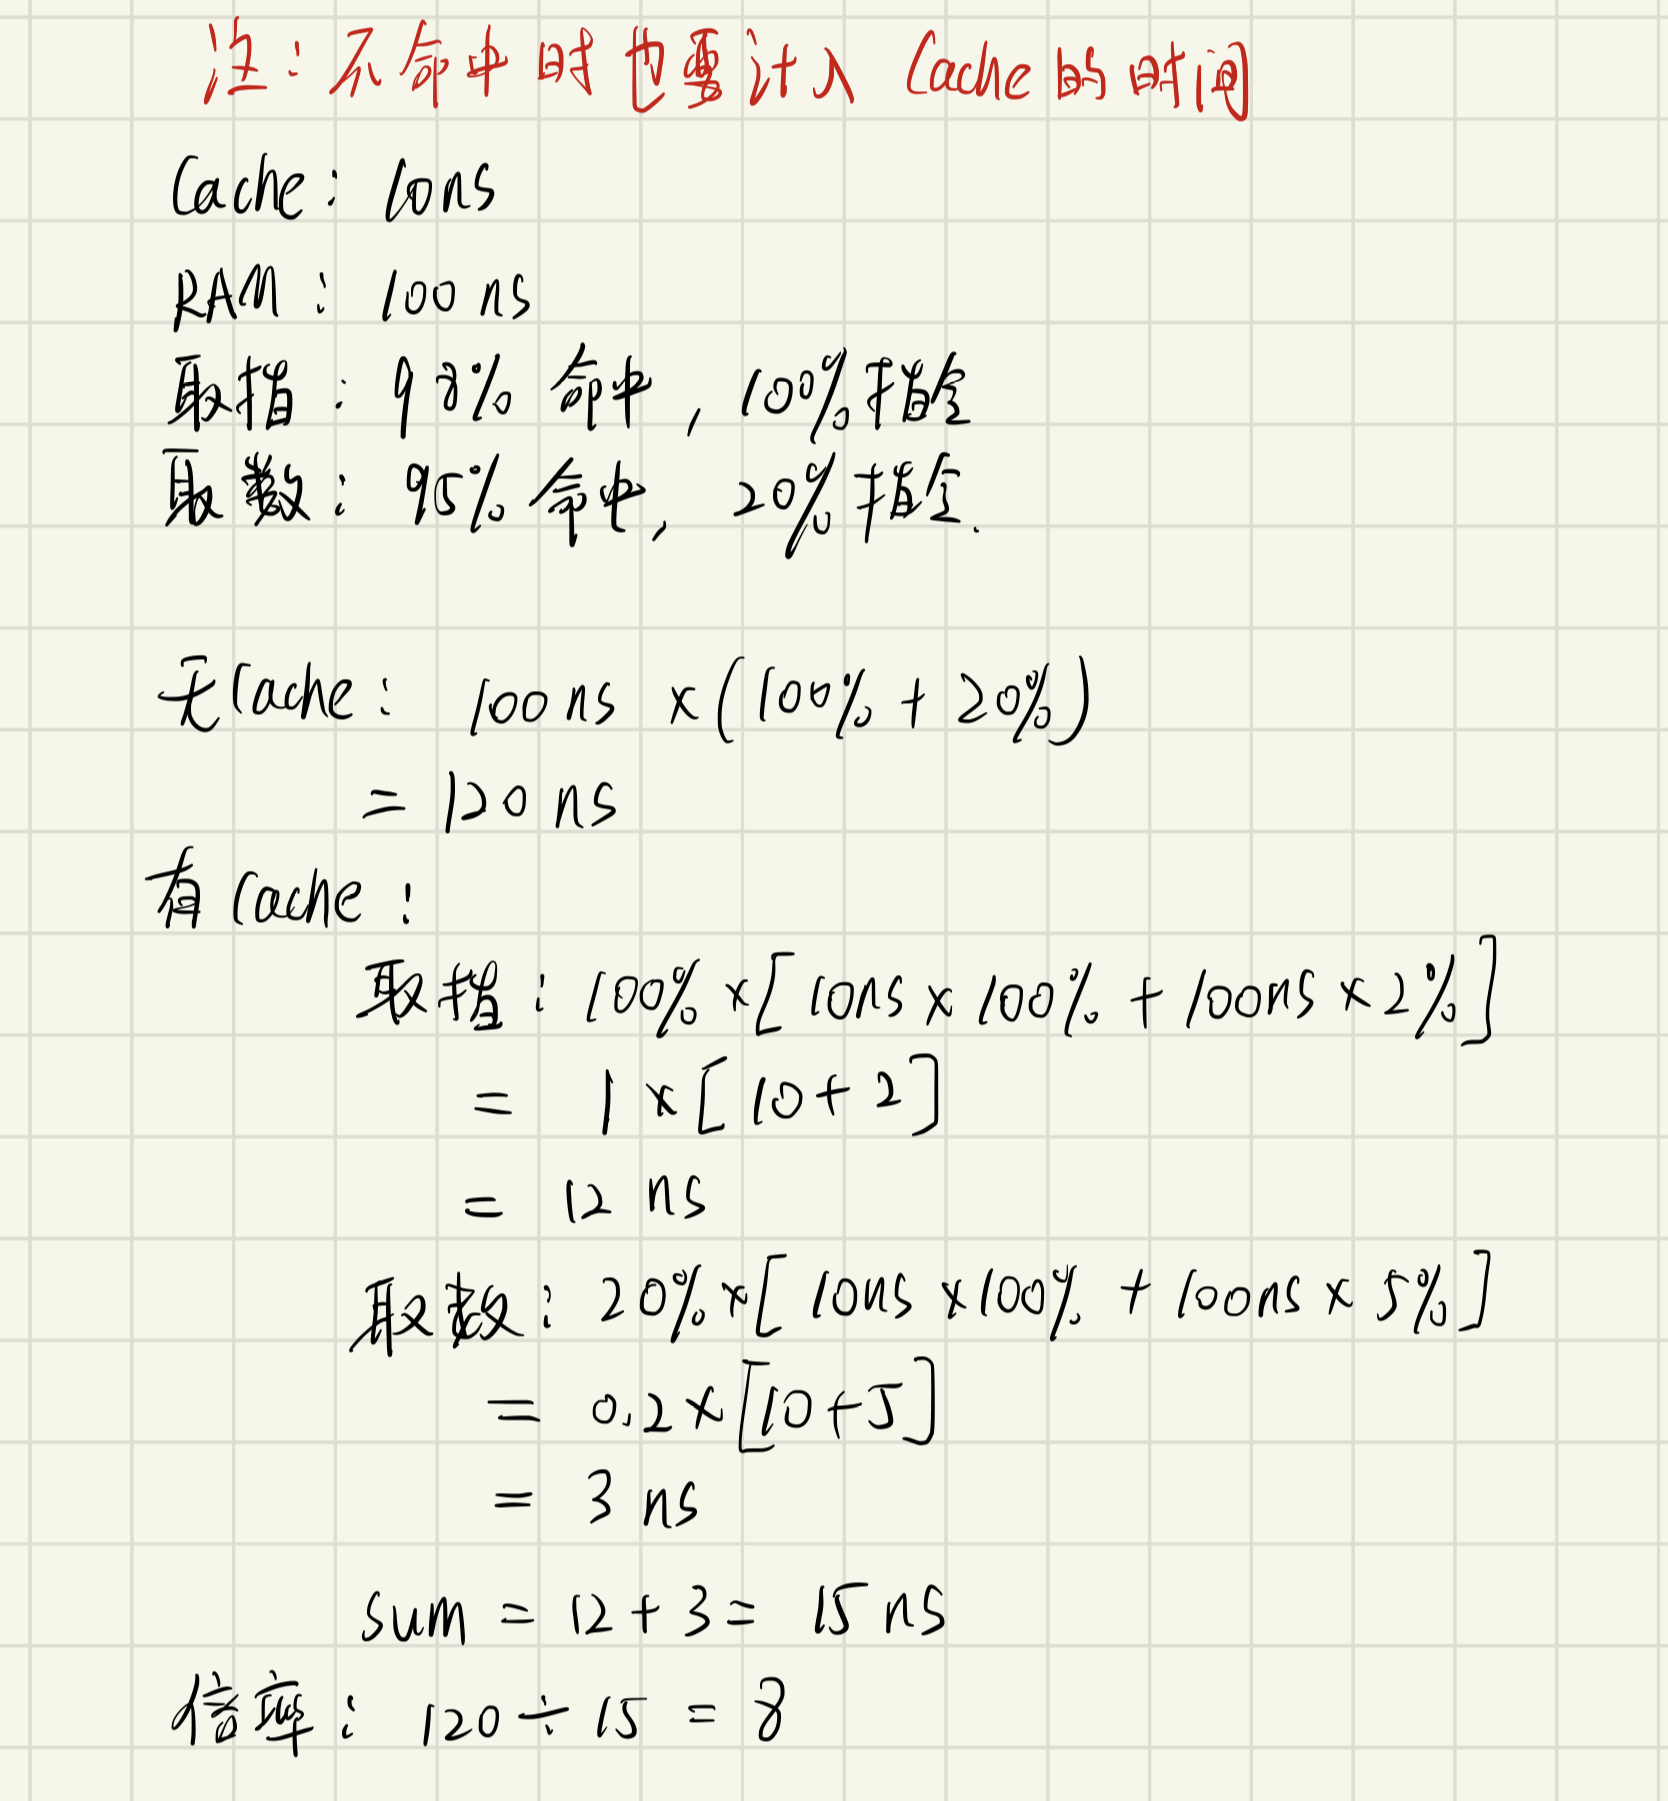 注：不命中时也要计入 Cache 的时间
Cache： 10ns
RAM： 100 ns
取指： 98% 命中，100%指令
取数： 95% 命中，20%指令.
无Cache： 100 ns ×(100% + 20%)
= 120 ns
有Cache：
取指： 100% ×[10ns × 100% + 100ns × 2%]
= 1 ×[10 + 2]
= 12 ns
取数： 20% ×[10ns ×100% + 100ns × 5%]
= 0.2 ×[10 + 5]
= 3 ns
sum = 12 + 3 = 15 ns
倍率： 120 ÷ 15 = 8